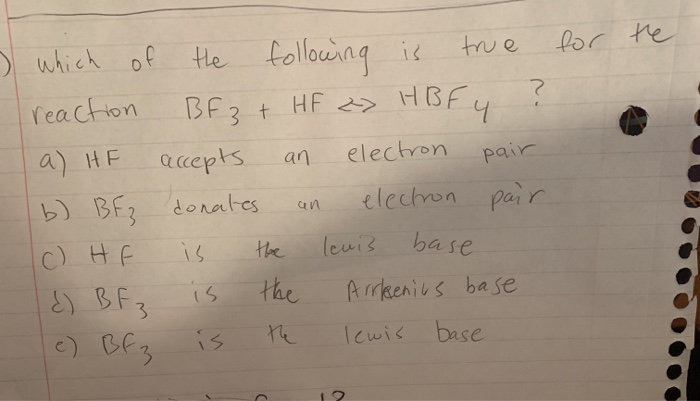 ) which of the following is true for the
reaction BF3 + HF <=> HBF4 ?
a) HF accepts an electron pair
b) BF3 donates an electron pair
c) HF is the lewis base
d) BF3 is the Arrhenius base
e) BF3 is the lewis base